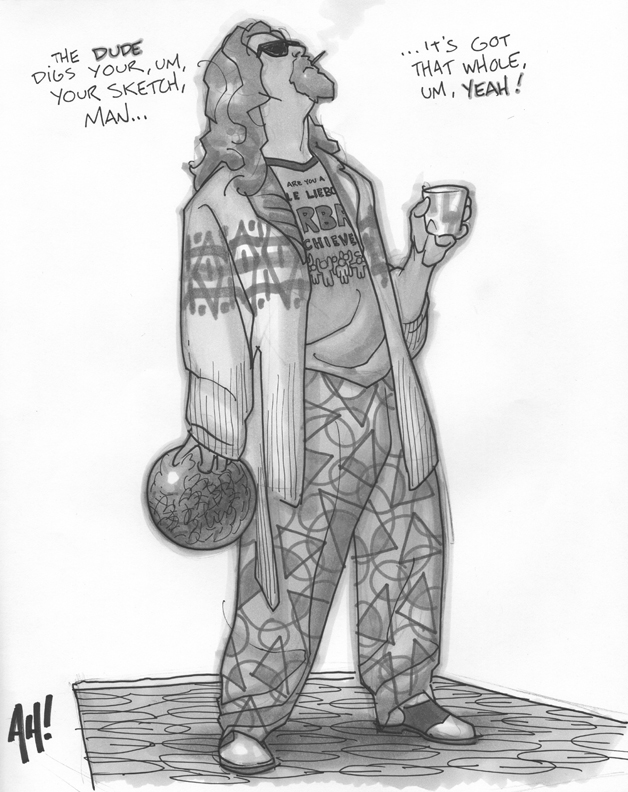 THE DUDE
DIGS YOUR, UM,
YOUR SKETCH,
MAN...
...IT'S GOT
THAT WHOLE,
UM, YEAH!
ARE YOU A
LE
RBA
CHIEVE
AH!